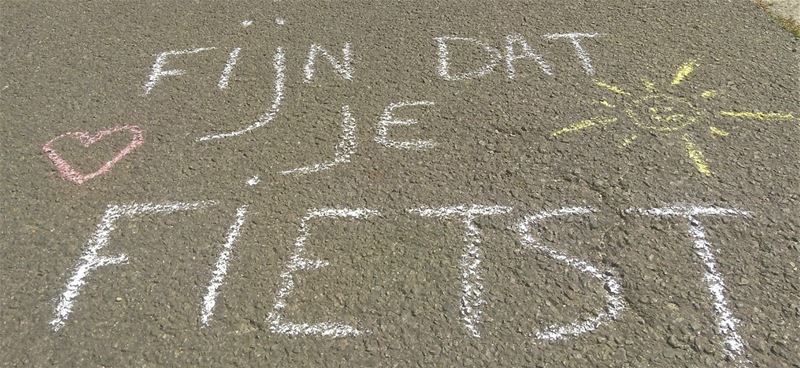 FijN DAT
JE
FiETST